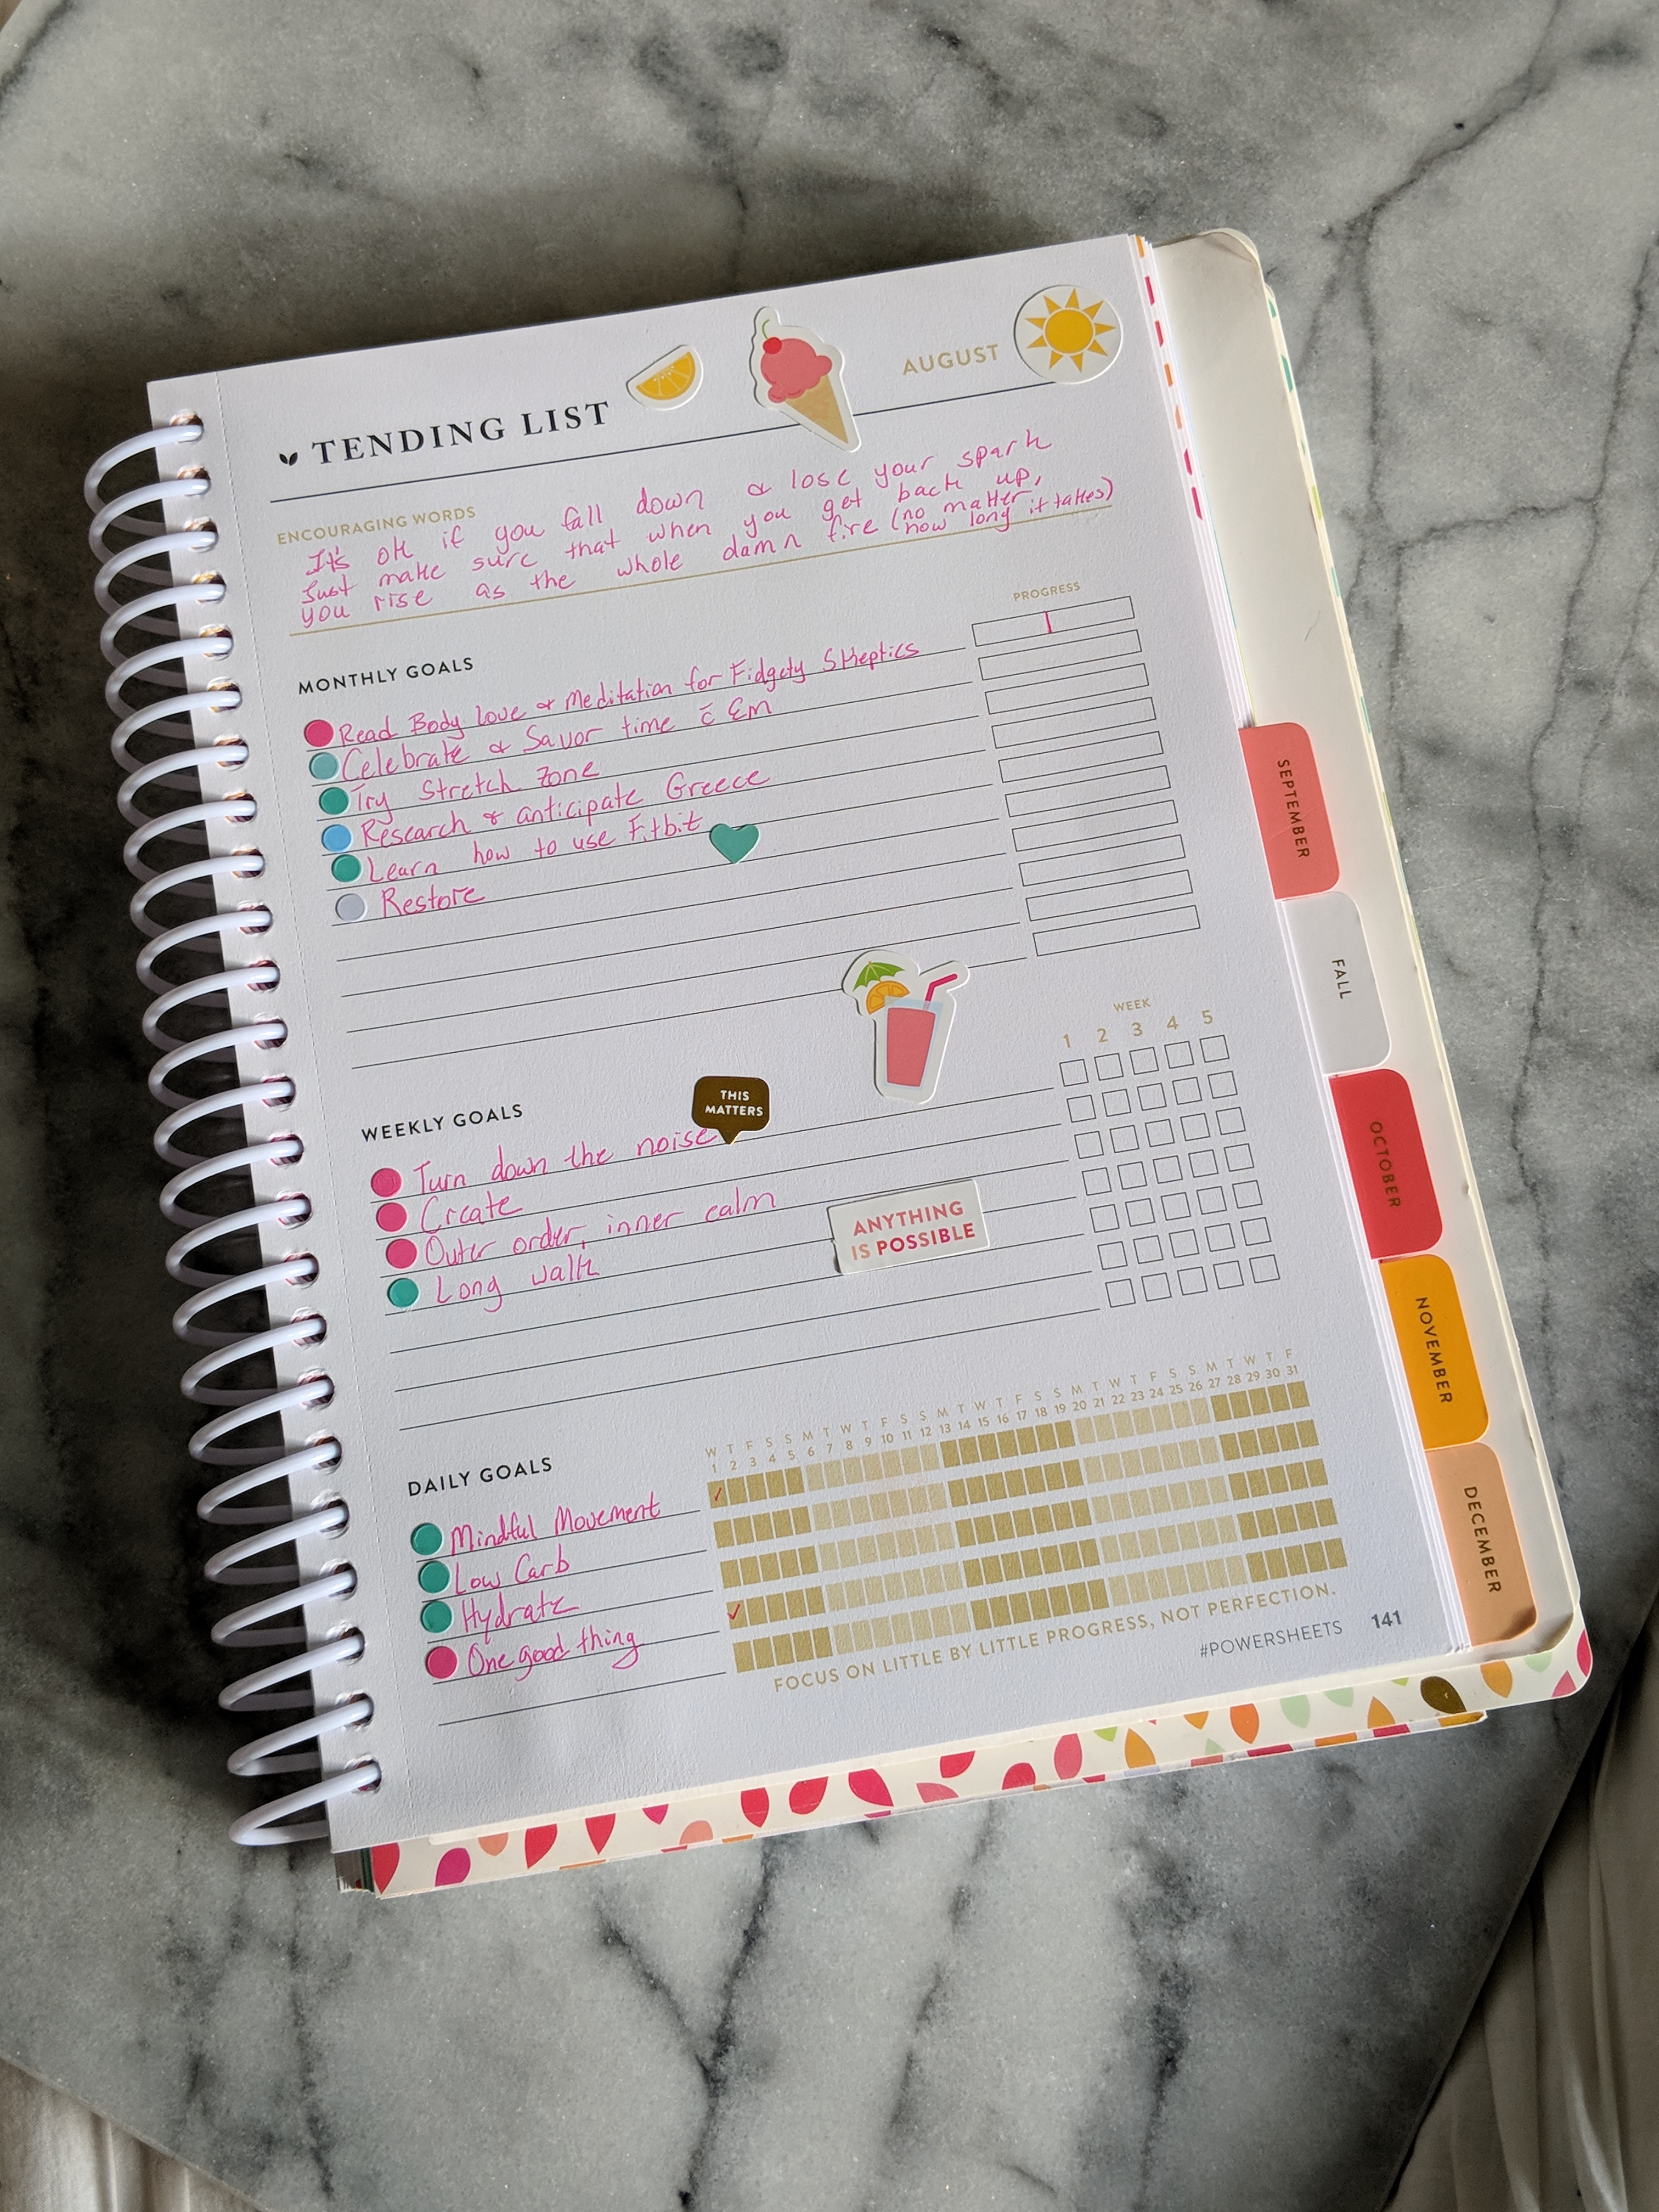 TENDING LIST
AUGUST
ENCOURAGING WORDS
It's ok if you fall down & lose your spark
Just make sure that when you get back up,
you rise as the whole damn fire (no matter
how long it takes)
PROGRESS
MONTHLY GOALS
Read Body Love & Meditation for Fidgety Skeptics
Celebrate & Savor time c̄ Em
Try Stretch Zone
Research & anticipate Greece
Learn how to use Fitbit
Restore
WEEK
1 2 3 4 5
WEEKLY GOALS
THIS
MATTERS
Turn down the noise
Create
Outer order, inner calm
Long walk
ANYTHING
IS POSSIBLE
W T F S S M T W T F S S M T W T F S S M T W T F S S M T W T F
1 2 3 4 5 6 7 8 9 10 11 12 13 14 15 16 17 18 19 20 21 22 23 24 25 26 27 28 29 30 31
DAILY GOALS
Mindful Movement
Low Carb
Hydrate
One good thing
FOCUS ON LITTLE BY LITTLE PROGRESS, NOT PERFECTION.
#POWERSHEETS 141
SEPTEMBER
FALL
OCTOBER
NOVEMBER
DECEMBER